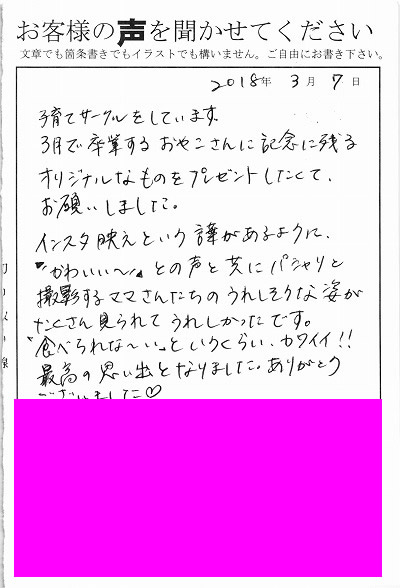 お客様の声を聞かせてください
文章でも箇条書きでもイラストでも構いません。ご自由にお書き下さい。
2018年 3月 7日
子育てサークルをしています。
3月で卒業するおやこさんに記念に残る
オリジナルなものをプレゼントしたくて、
お願いしました。
インスタ映えという言葉があるように、
"かわいい〜"との声と共にパシャリと
撮影するママさんたちのうれしそうな姿が
たくさん見られてうれしかったです。
"食べられな〜い"というくらい、カワイイ!!
最高の思い出となりました。ありがとう
ございました♡